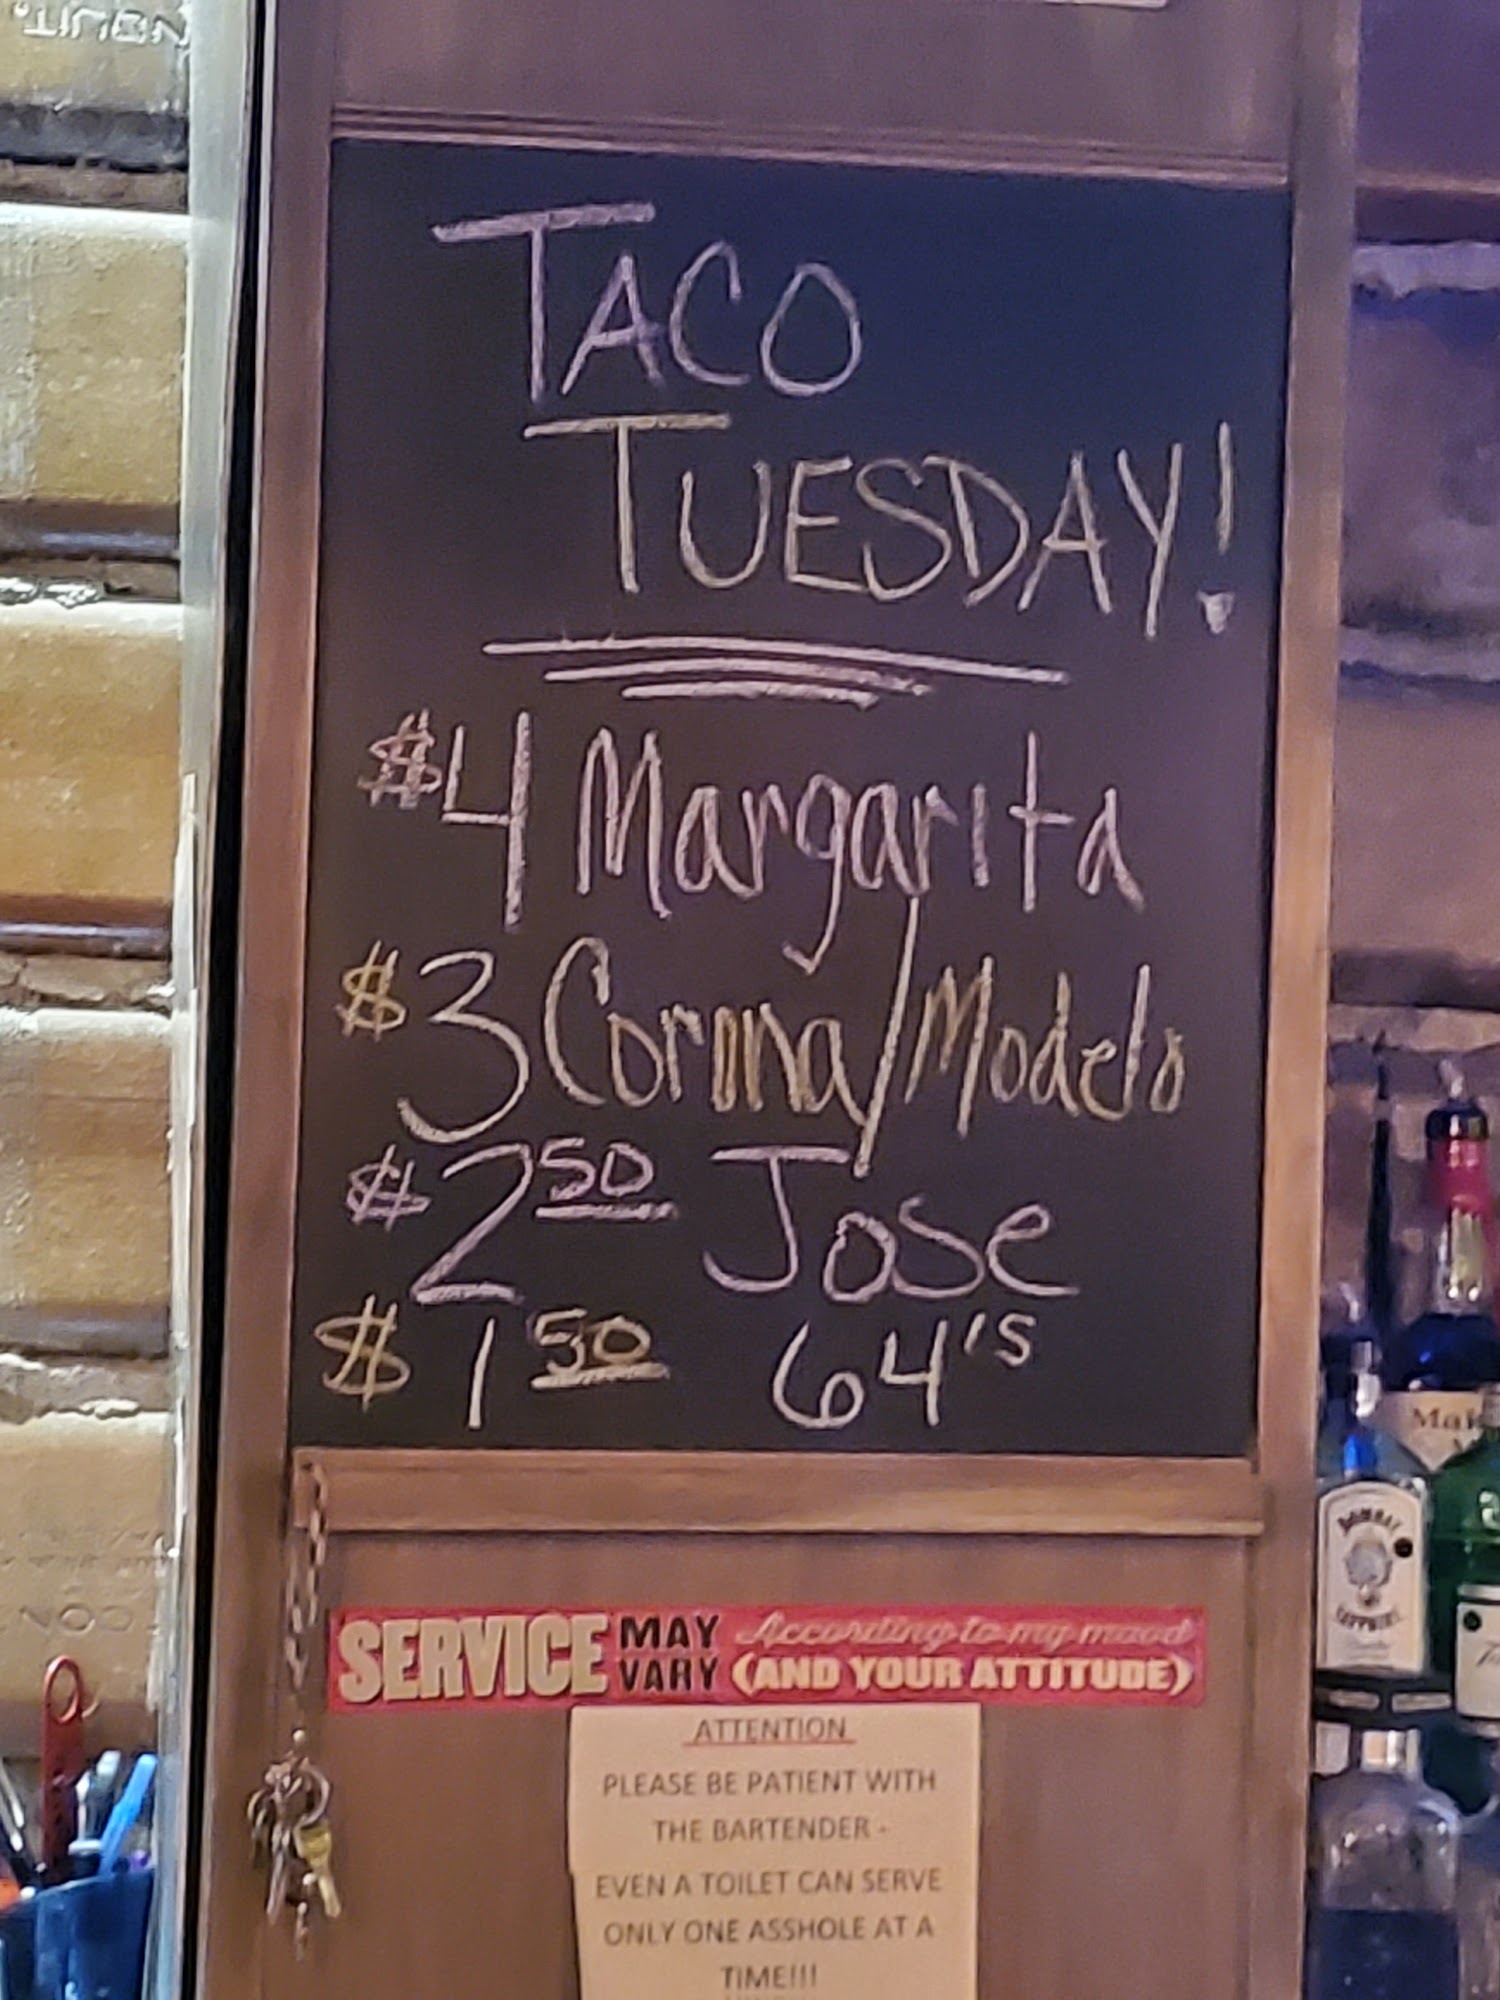 TACO
TUESDAY!
$4 Margarita
$3 Corona/Modelo
$2 50 Jose
$1 50 64's
SERVICE MAY VARY According to my mood (AND YOUR ATTITUDE)
ATTENTION
PLEASE BE PATIENT WITH
THE BARTENDER -
EVEN A TOILET CAN SERVE
ONLY ONE ASSHOLE AT A
TIME!!!
BOMBAY
SAPPHIRE